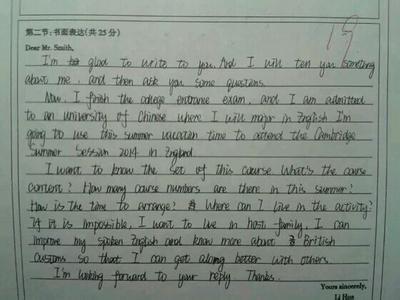 第二节:书面表达(共25分)
19
Dear Mr. Smith,
I'm glad to write to you. And I will ten you something
about me, and then ask you some questions.
Now, I finish the college entrance exam, and I am admitted
to an university of Chinese where I will major in English I'm
going to use this summer vacation time to attend the Cambridge
Summer Session 2014 in England
I want to know the set of this course What's the course
content? How many course numbers are there in this summer?
How is the time to arrange? Where can I live in the activity?
If it is impossible, I want to live in host family, I can
improve my spoken English and know more about British
customs so that I can get along better with others.
I'm looking forward to your reply Thanks.
Yours sincerely,
Li Hua